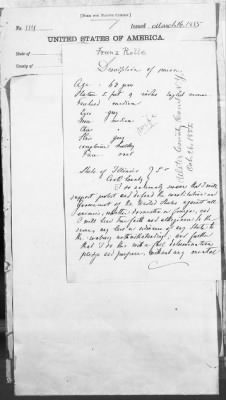 [FORM FOR NATIVE CITIZEN.]
No. 1119
Issued March 16, 1885
UNITED STATES OF AMERICA.
State of
County of
Franz Rolle
Description of person
Age 63 years
Stature 5 feet 9 inches English measure
Forehead medium
Eyes grey
Nose medium
Chin "
Hair grey
Complexion healthy
Face oval
Ulster County Court N.Y.
Oct. 26, 1852
State of Illinois
Cook County } SS
I do solemnly swear that I will
support protect and defend the constitution and
Government of the United States against all
enemies, whether domestic or foreign, and
I will bear true faith and allegiance to the
same, any law or ordinance of any State to
the contrary notwithstanding; and further
that I do this with a full determination
pledge and purpose, without any mental